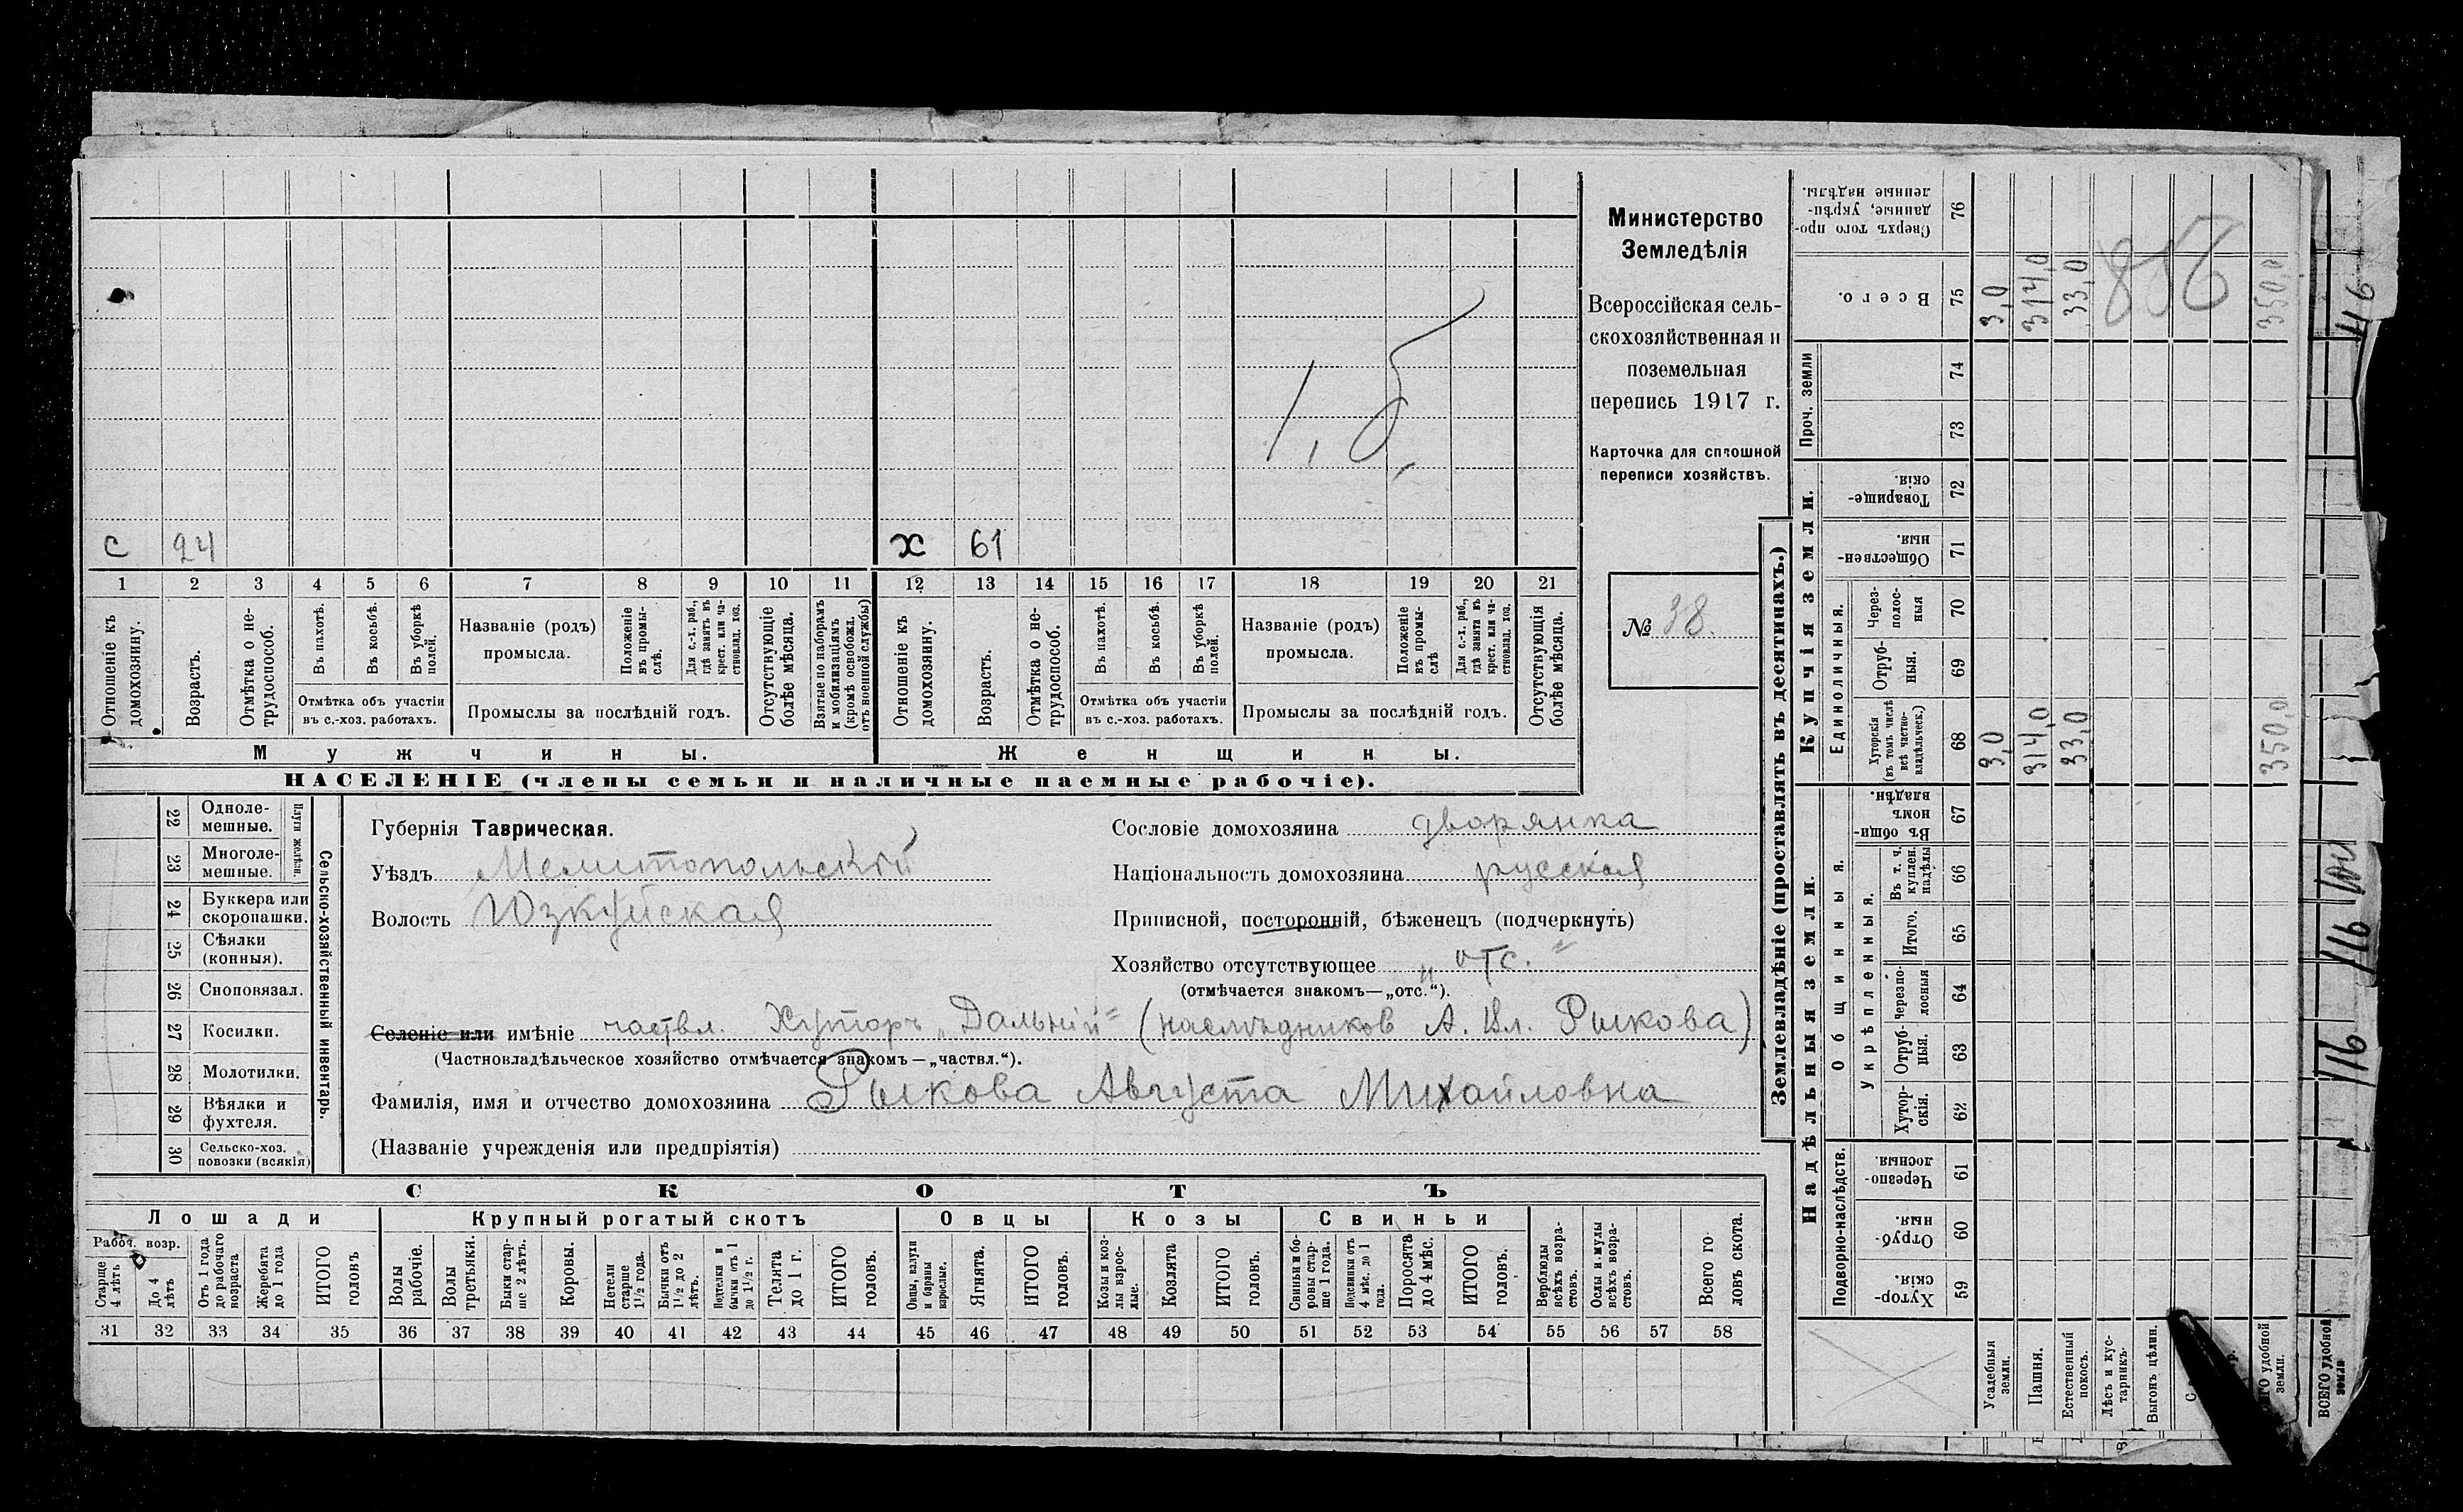 с 24 х 61
1,8,
1 2 3 4 5 6 7 8 9 10 11 12 13 14 15 16 17 18 19 20 21
Отношеніе къ домохозяину.
Возрастъ.
Отмѣтка о не-трудоспособ.
Въ пахотѣ.
Въ косьбѣ.
Въ уборкѣ полей.
Отмѣтка объ участіи
въ с.-хоз. работахъ.
Названіе (родъ)
промысла.
Положеніе въ промы-слѣ.
Для с.-х. раб., гдѣ занятъ въ крест. или ча-стновлад. хоз.
Промыслы за послѣдній годъ.
Отсутствующіе болѣе мѣсяца.
Взятые по наборамъ и мобилизаціямъ (кромѣ освобожд. отъ военной службы)
Отношеніе къ домохозяину.
Возрастъ.
Отмѣтка о не-трудоспособ.
Въ пахотѣ.
Въ косьбѣ.
Въ уборкѣ полей.
Отмѣтка объ участіи
въ с.-хоз. работахъ.
Названіе (родъ)
промысла.
Положеніе въ промы-слѣ
Для с.-х. раб., гдѣ занята въ крест. или ча-стновлад. хоз.
Промыслы за послѣдній годъ.
Отсутствующія болѣе мѣсяца.
Мужчины. Женщины.
НАСЕЛЕНІЕ (члены семьи и наличные наемные рабочіе).
Министерство
Земледѣлія
Всероссійская сель-
скохозяйственная и
поземельная
перепись 1917 г.
Карточка для сплошной
переписи хозяйствъ.
№ 38.
22 Одноле-мешные.
23 Многоле-мешные.
Плуги желѣзн.
24 Буккера или скоропашки.
25 Сѣялки (конныя).
26 Сноповязал.
27 Косилки.
28 Молотилки.
29 Вѣялки и фухтеля.
30 Сельско-хоз. повозки (всякія)
Сельско-хозяйственный инвентарь.
Губернія Таврическая.
Уѣздъ Мелитопольскій
Волость Юзкуйская
Сословіе домохозяина дворянка
Національность домохозяина русская
Приписной, посторонній, бѣженецъ (подчеркнуть)
Хозяйство отсутствующее „отс.“
(отмѣчается знакомъ—„отс.“).
Селеніе или имѣніе частвл. Хуторъ „Дальній“ (наслѣдников А. Вл. Рыкова)
(Частновладѣльческое хозяйство отмѣчается знакомъ—„частвл.“).
Фамилія, имя и отчество домохозяина Рыкова Августа Михайловна
(Названіе учрежденія или предпріятія)
СКОТЪ
Лошади Крупный рогатый скотъ Овцы Козы Свиньи
Рабоч. возр.
Старше 4 лѣтъ
До 4 лѣтъ
Отъ 1 года до рабочаго возраста
Жеребята до 1 года
ИТОГО головъ
Волы рабочіе.
Волы третьяки.
Быки стар-ше 2 лѣтъ.
Коровы.
Нетели старше 1½ года.
Бычки отъ 1½ до 2 лѣтъ.
Подтелки и бычки отъ 1 до 1½ г.
Телята до 1 г.
ИТОГО головъ.
Овцы, валухи и бараны взрослые.
Ягнята.
ИТОГО головъ.
Козы и коз-лы взрос-лые.
Козлята
ИТОГО головъ.
Свиньи и бо-ровы стар-ше 1 года.
Подсвинки отъ 4 мѣс. до 1 года.
Поросята до 4 мѣс.
ИТОГО головъ.
Верблюды всѣхъ возра-стовъ.
Ослы и мулы всѣхъ возра-стовъ.
Всего го-ловъ скота.
31 32 33 34 35 36 37 38 39 40 41 42 43 44 45 46 47 48 49 50 51 52 53 54 55 56 57 58
Землевладѣніе (проставлять въ десятинахъ.)
Надѣльныя земли. Купчія земли.
Подворно-наслѣдств.
Общинныя.
Укрѣпленныя.
Единоличныя.
Проч. земли
Хутор-скія. 59
Отруб-ныя. 60
Черезпо-лосныя. 61
Хутор-скія. 62
Отруб-ныя. 63
Черезпо-лосныя 64
Итого. 65
Въ т. ч. куплен. надѣлы 66
Въ общин-номъ владѣн. 67
Хуторскія (въ томъ числѣ всѣ частно-владѣльческ.) 68
Отруб-ныя. 69
Через-полос-ныя 70
Обществен-ныя. 71
Товарище-скія. 72
73
74
Всего. 75
Сверхъ того про-данные, укрѣп-ленные надѣлы. 76
Усадебныя земли. 3,0 3,0
Пашня. 314,0 314,0
Естественный покосъ. 33,0 33,0
Лѣсъ и кус-тарникъ.
Выгонъ цѣлин.
удобной земли. 350,0 350,0
856
ВСЕГО удобной земли
116
116
116